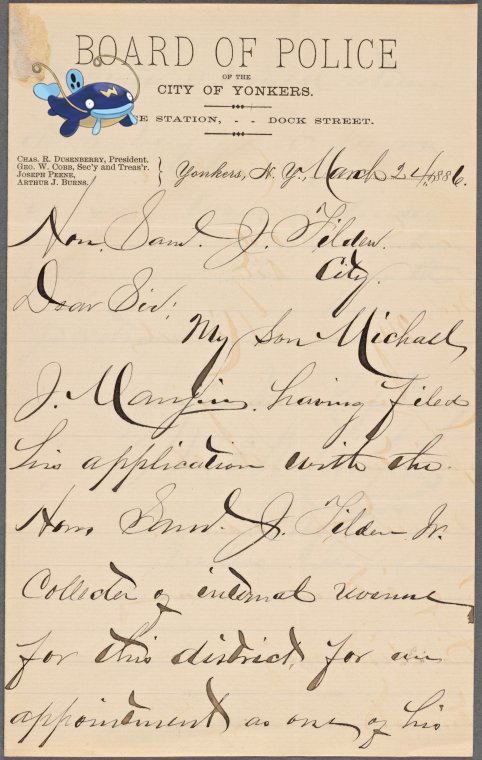 BOARD OF POLICE
OF THE
CITY OF YONKERS.
E STATION, - - DOCK STREET.
CHAS. R. DUSENBERRY, President.
GEO. W. COBB, Sec'y and Treas'r.
JOSEPH PEENE,
ARTHUR J. BURNS.
Yonkers, N. Y., March 24, 1886.
Hon. Saml. J. Tilden.
City.
Dear Sir:
My Son Michael
J. Mangin. having filed
his application with the
Hon. Saml. J. Tilden Jr.
Collector of internal revenue
for this district, for an
appointment as one of his